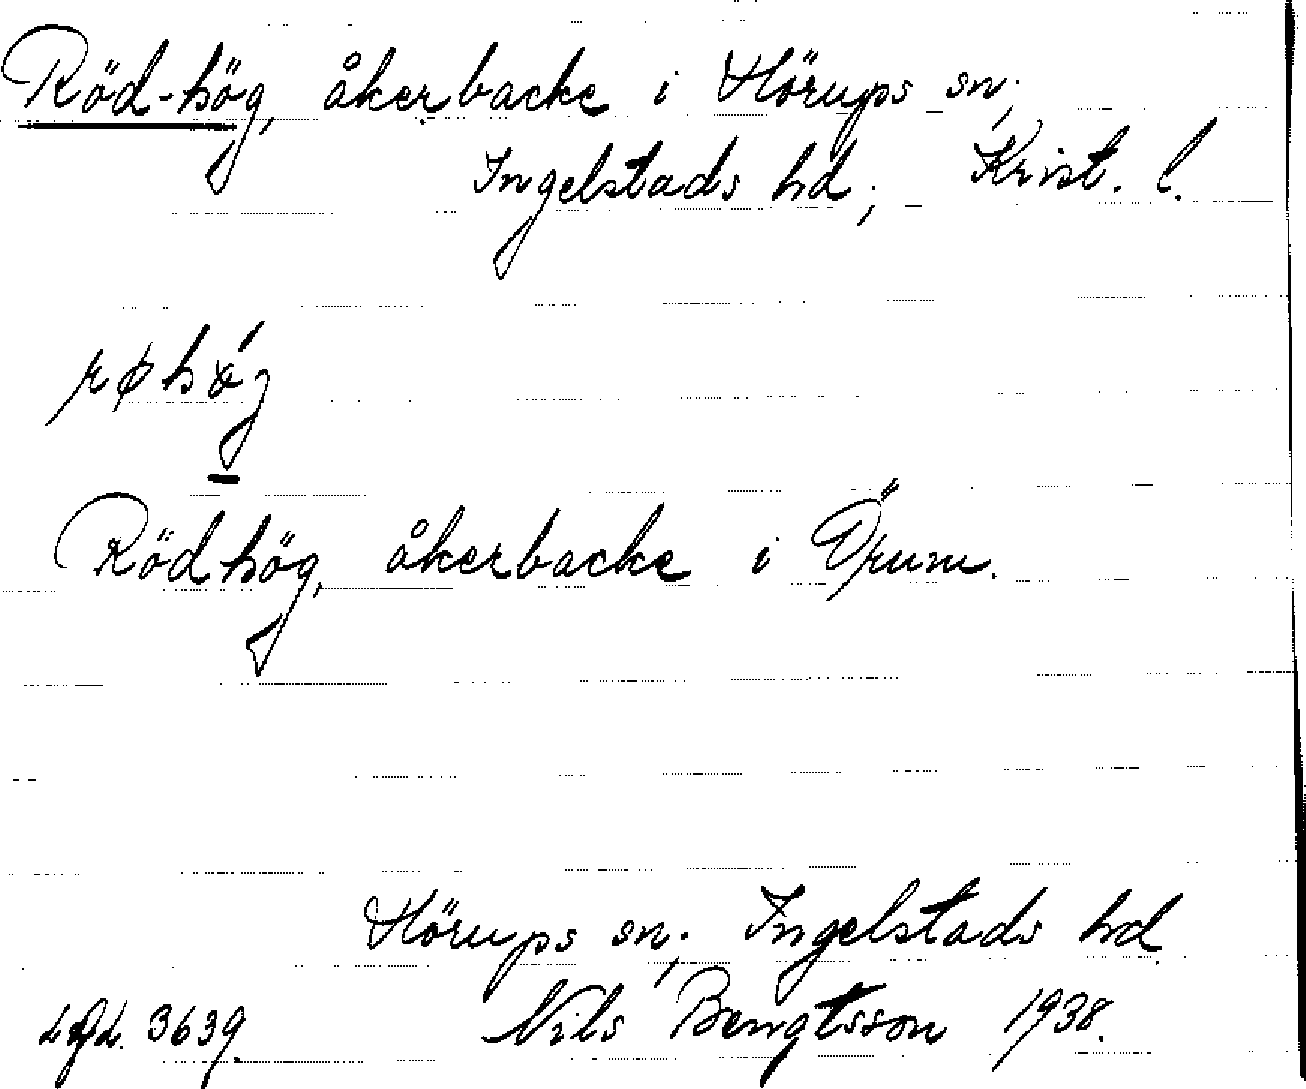 Röd-hög, åkerbacke i Hörups sn;
Ingelstads hd; Krist. l.
røhǿg
Rödhög, åkerbacke i Örum.
Hörups sn; Ingelstads hd
Nils Bengtsson 1938.
3639.